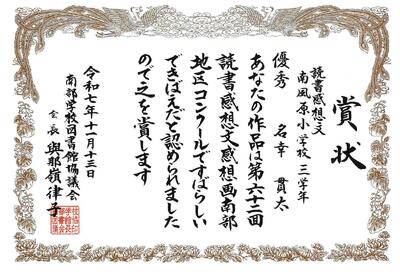 賞状
読書感想文
南風原小学校 三学年
優秀 名幸 貫太
あなたの作品は第六十二回
読書感想文感想画南部
地区コンクールですばらしい
できばえだと認められました
ので之を賞します
令和七年十一月十三日
南部学校図書館協議会
会長 與那嶺律子